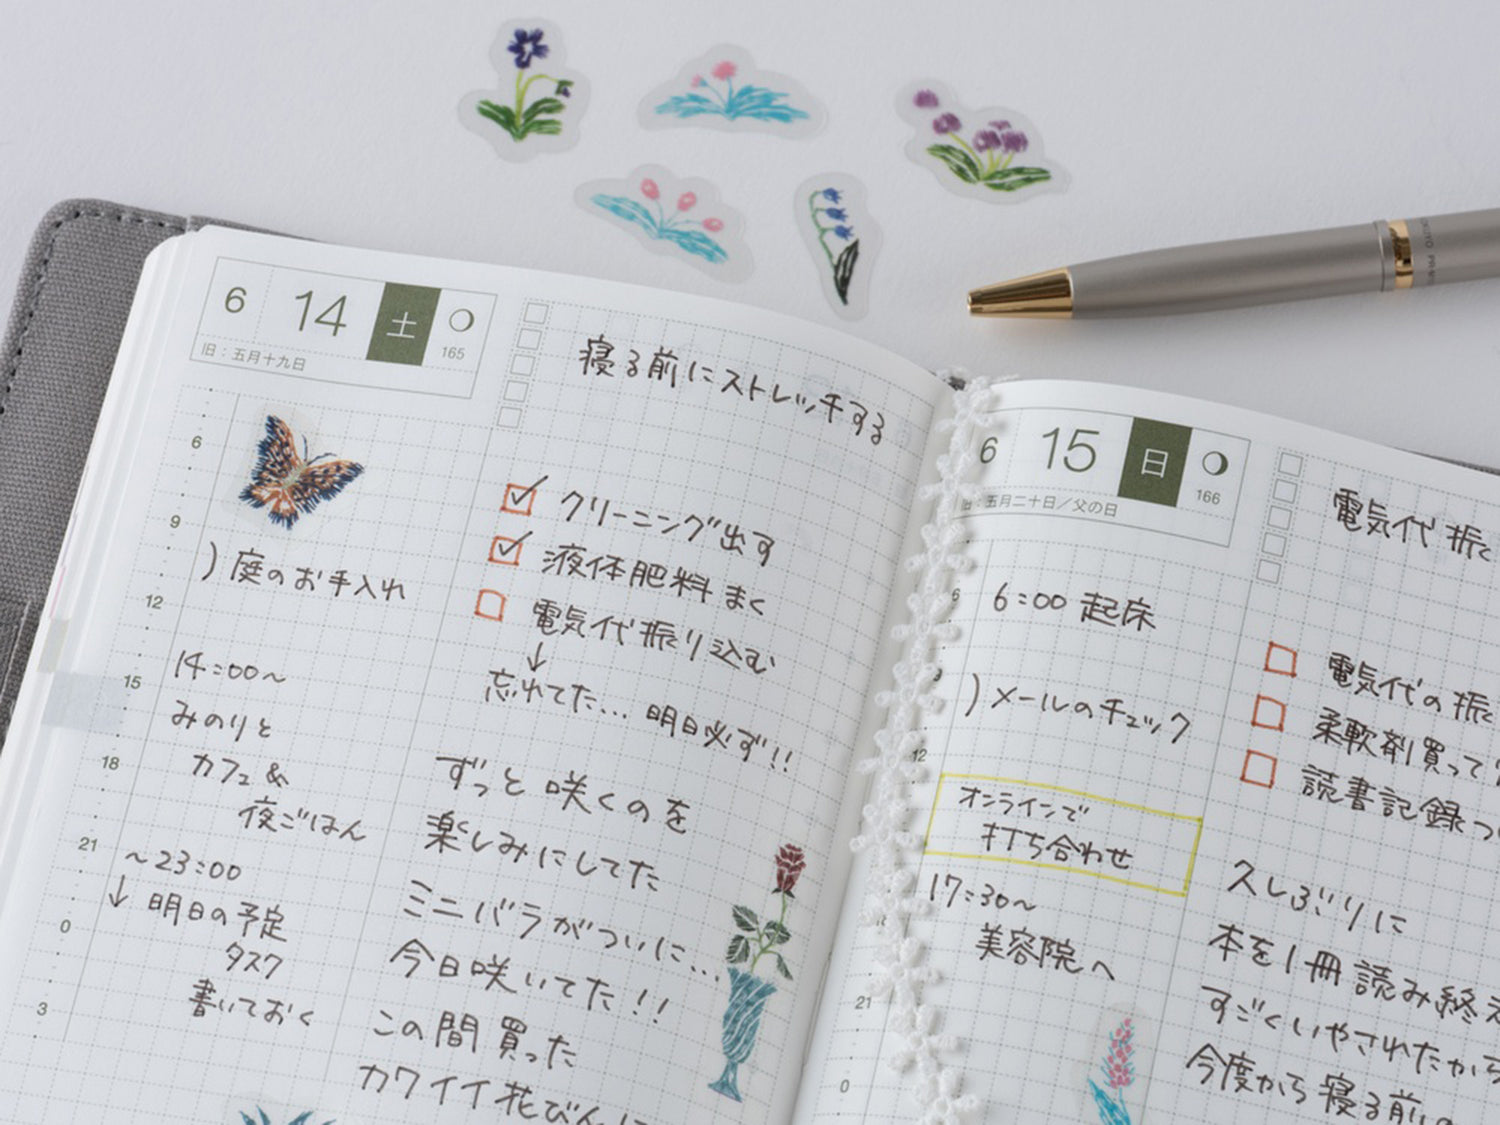 6 14 土
165
旧：五月十九日
寝る前にストレッチする
6
9
12
15
18
21
0
3
)庭のお手入れ
14:00〜
みのりと
カフェ&
夜ごはん
〜23:00
↓明日の予定
タスク
書いておく
クリーニング出す
液体肥料まく
電気代振り込む
↓
忘れてた… 明日必ず!!
ずっと咲くのを
楽しみにしてた
ミニバラがついに…
今日咲いてた!!
この間買った
カワイイ花びん
6 15 日
166
旧：五月二十日／父の日
電気代 振
6
9
12
21
0
6:00 起床
)メールのチェック
オンラインで
打ち合わせ
17:30〜
美容院へ
電気代の振
柔軟剤買って
読書記録つ
久しぶりに
本を1冊読み終え
すごくいやされたから
今度から寝る前の